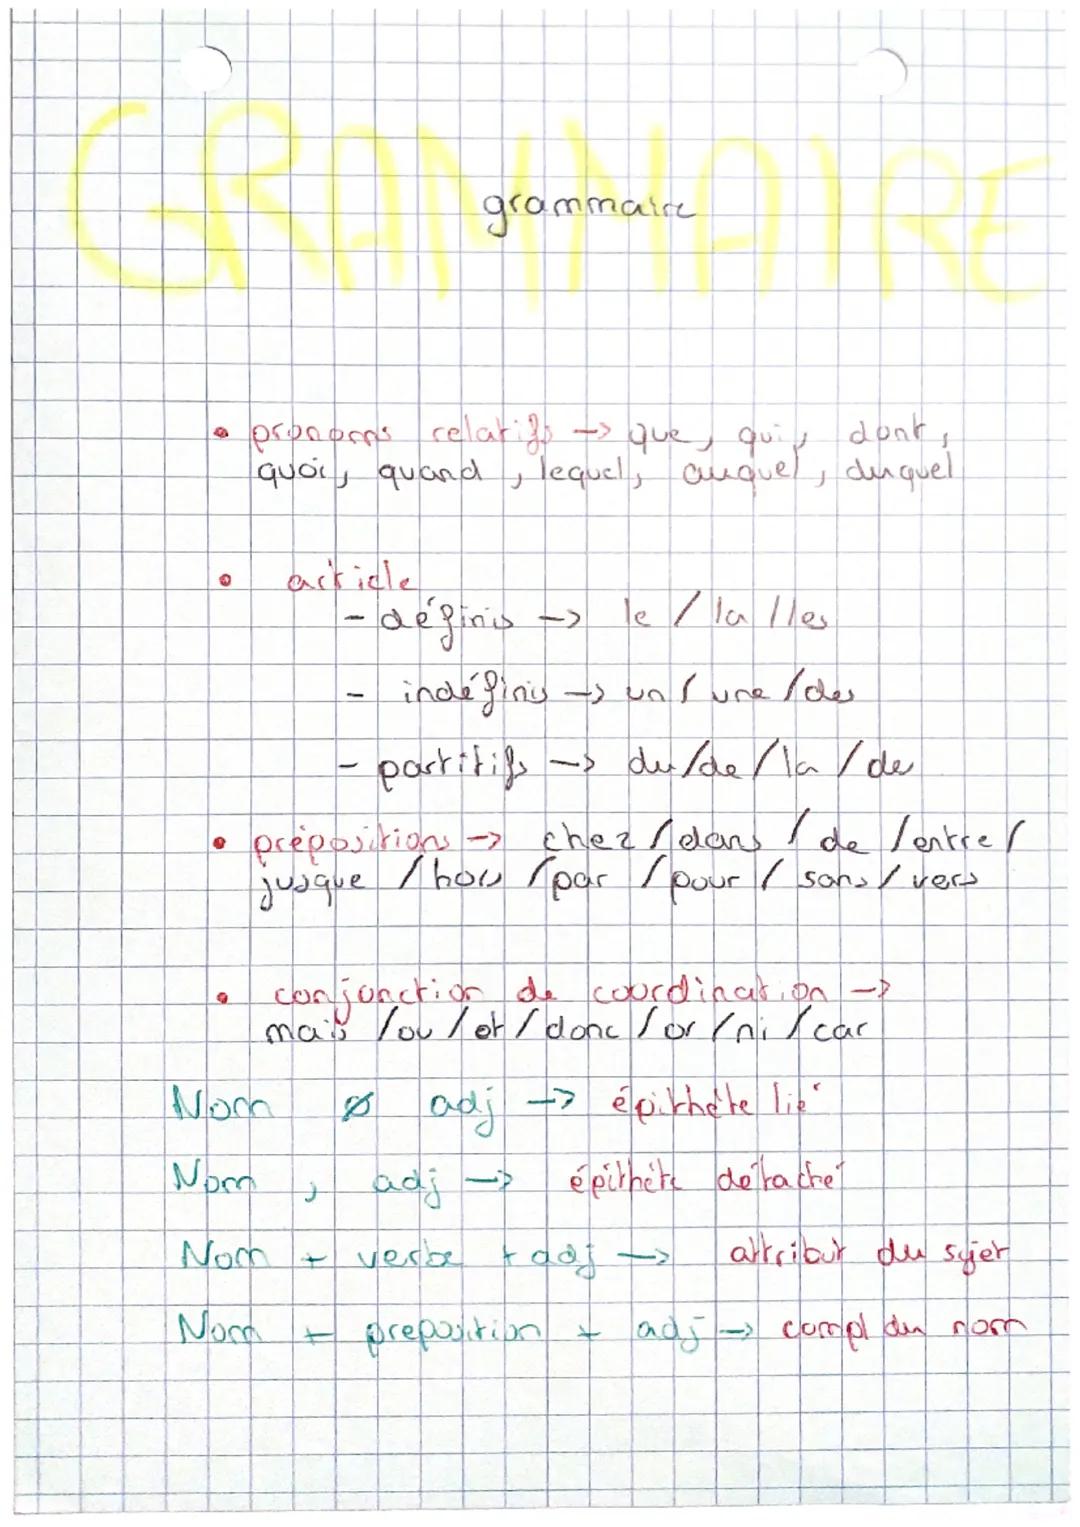 GRAMMAIRE
grammaire
• pronoms relatifs -> que, qui, dont,
quoi, quand, lequel, auquel, duquel
• article
- définis -> le / la / les
- indéfinis -> un / une / des
- partitifs -> du / de / la / de
• prépositions -> chez / dans / de / entre /
jusque / hors / par / pour / sans / vers
• conjonction de coordination ->
mais / ou / et / donc / or / ni / car
Nom ∅ adj -> épithète lié
Nom , adj -> épithète détaché
Nom + verbe + adj -> attribut du sujet
Nom + preposition + adj -> compl du nom